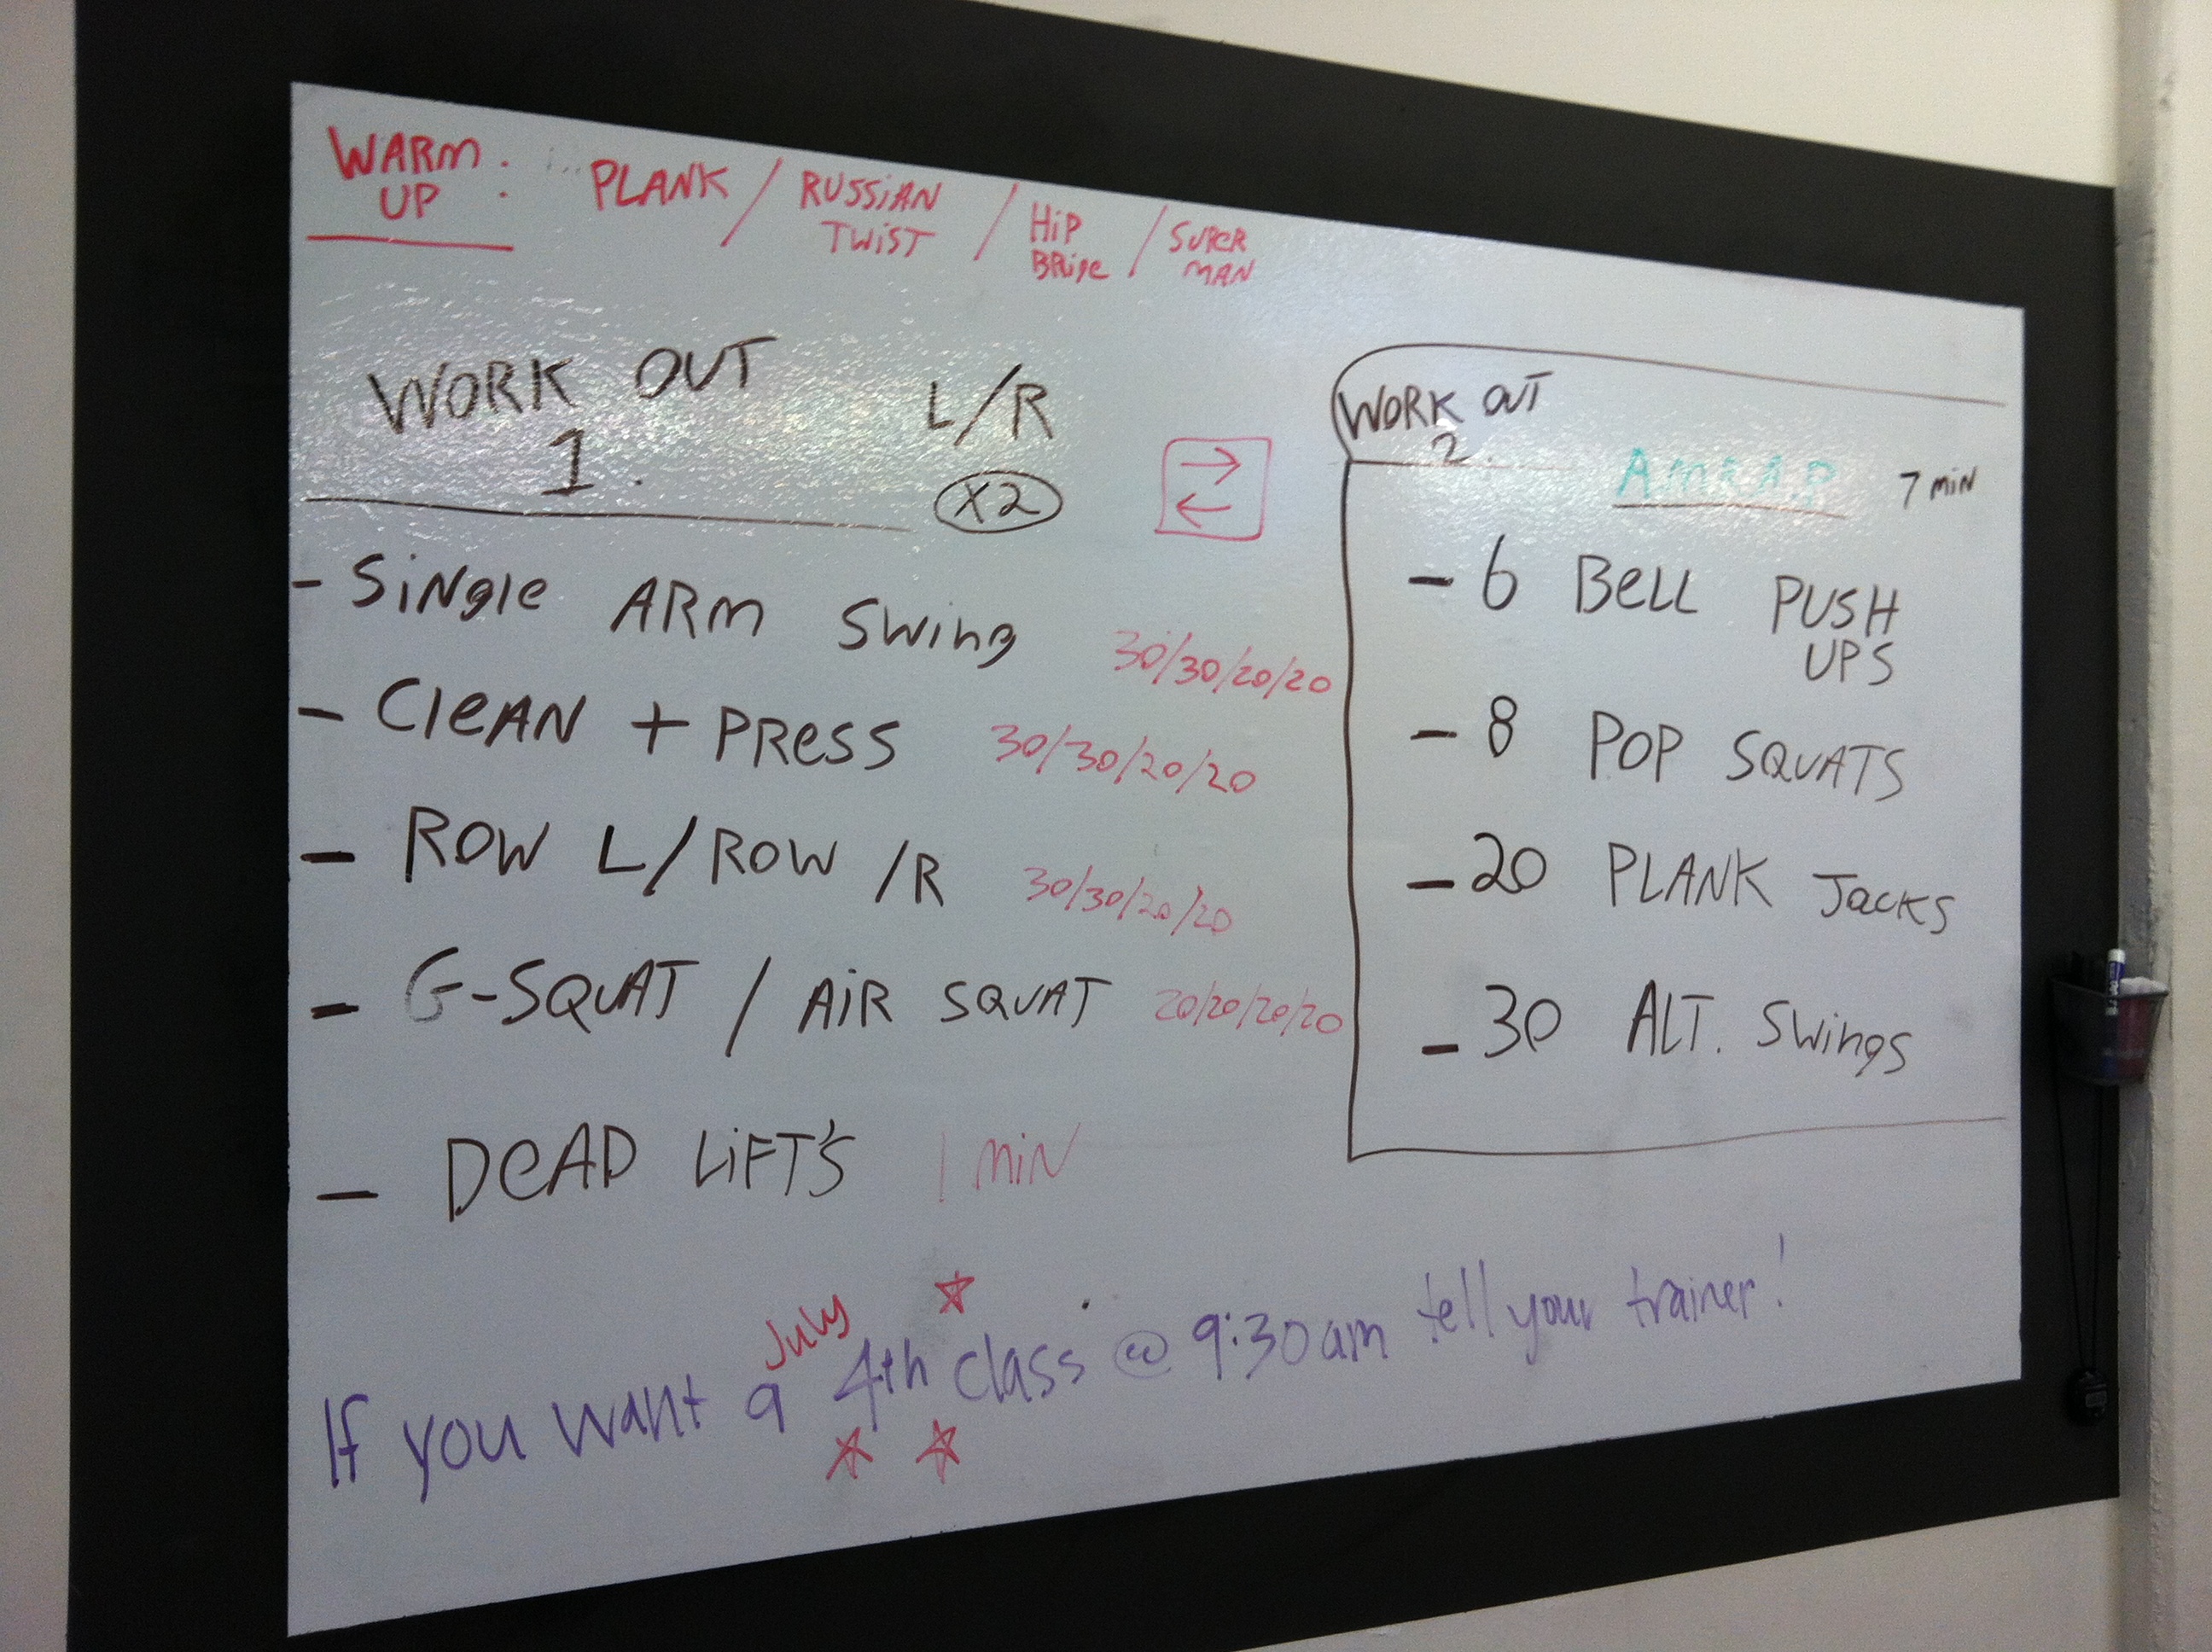 WARM UP : PLANK / RUSSiAN TWiST / HiP BRige / SUPER MAN
WORK OUT 1. L/R
X2
- SiNgle ARM Swing 30/30/20/20
- CleAN + PRess 30/30/20/20
- ROW L/ROW /R 30/30/20/20
- G-SQUAT / AiR SQUAT 20/20/20/20
- DeAD LiFT'S 1 MiN
WORK OUT 2.
AMRAP 7 MiN
- 6 BeLL PUSH UPS
- 8 POP SQUATS
- 20 PLANK Jacks
- 30 ALT. Swings
If you want a July 4th class @ 9:30am tell your trainer!